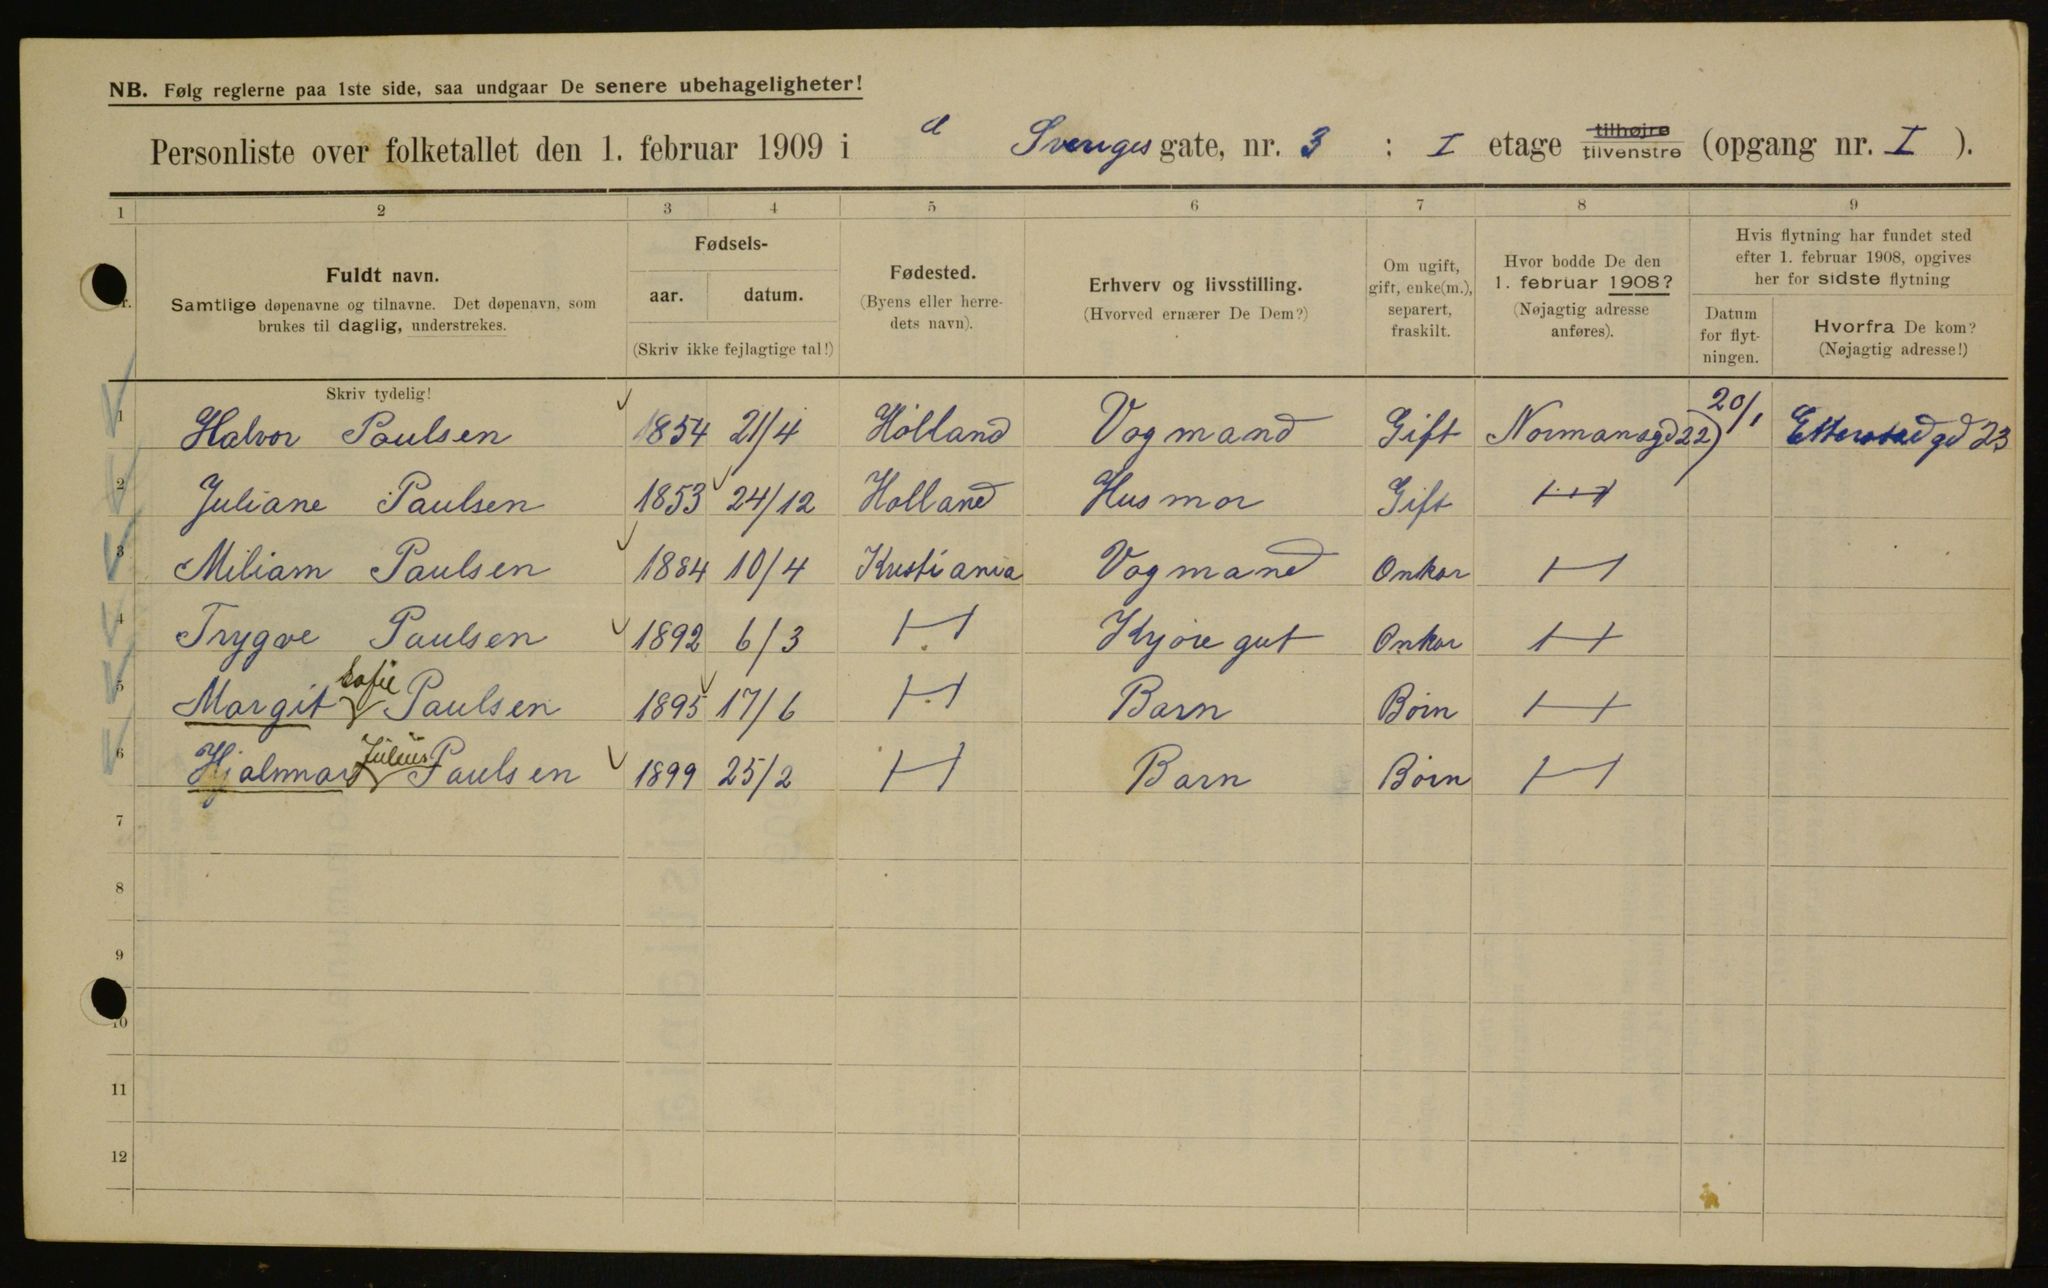 NB. Følg reglerne paa 1ste side, saa undgaar De senere ubehageligheter!
Personliste over folketallet den 1. februar 1909 i Sveriges gate, nr. 3 : I etage tilhøjre tilvenstre (opgang nr. I ).
1 2 3 4 5 6 7 8 9
Fuldt navn.
Samtlige døpenavne og tilnavne. Det døpenavn, som
brukes til daglig, understrekes.
Fødsels-
aar. datum.
(Skriv ikke fejlagtige tal!)
Fødested.
(Byens eller herre-
dets navn).
Erhverv og livsstilling.
(Hvorved ernærer De Dem?)
Om ugift,
gift, enke(m.),
separert,
fraskilt.
Hvor bodde De den
1. februar 1908?
(Nøjagtig adresse
anføres).
Hvis flytning har fundet sted
efter 1. februar 1908, opgives
her for sidste flytning
Datum
for flyt-
ningen.
Hvorfra De kom?
(Nøjagtig adresse!)
Skriv tydelig!
1 Halvor Paulsen 1854 21/4 Holland Vogmand Gift Normansgd 22) 20/1 Etterstadgd 23
2 Juliane Paulsen 1853 24/12 Holland Husmor Gift
3 Miliam Paulsen 1884 10/4 Kristiania Vogmand Onkar
4 Trygve Paulsen 1892 6/3 Kjøregut Onkar
5 Margit Sofie Paulsen 1895 17/6 Barn Børn
6 Hjalmar Julius Paulsen 1899 25/2 Barn Børn
7
8
9
10
11
12